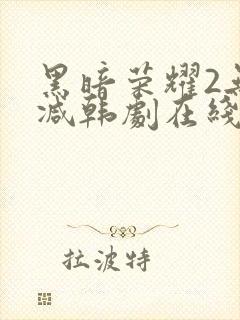 黑暗荣耀2
減韩劇在綫
拉波特